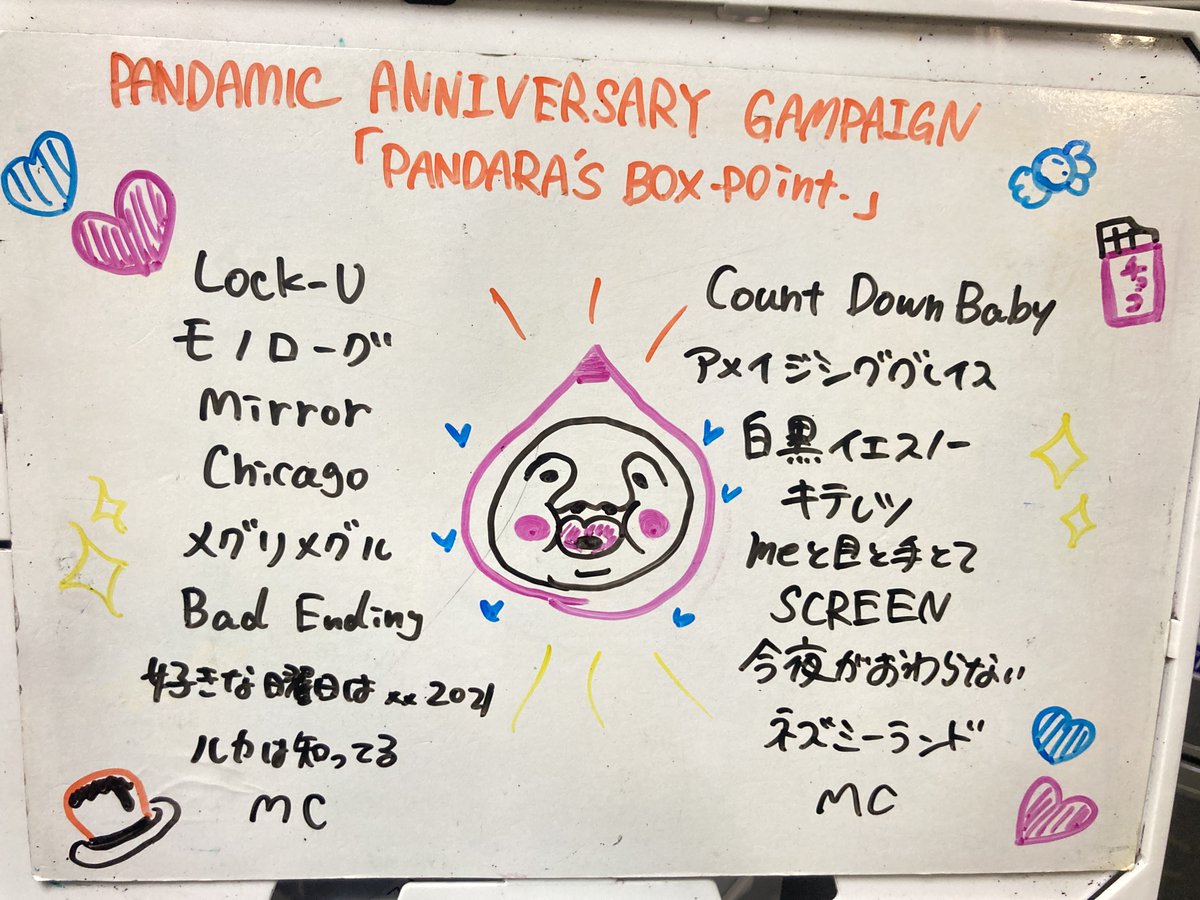 PANDAMIC ANNIVERSARY GAMPAIGN
「PANDARA'S BOX-POint-」
Lock-U
モノローグ
Mirror
Chicago
メグリメグル
Bad Ending
好きな日曜日は xx 2021
ルカは知ってる
MC
Count Down Baby
アメイジンググレイス
白黒イエスノー
キテレツ
meと目と手とて
SCREEN
今夜がおわらない
ネズミーランド
MC
チョコ